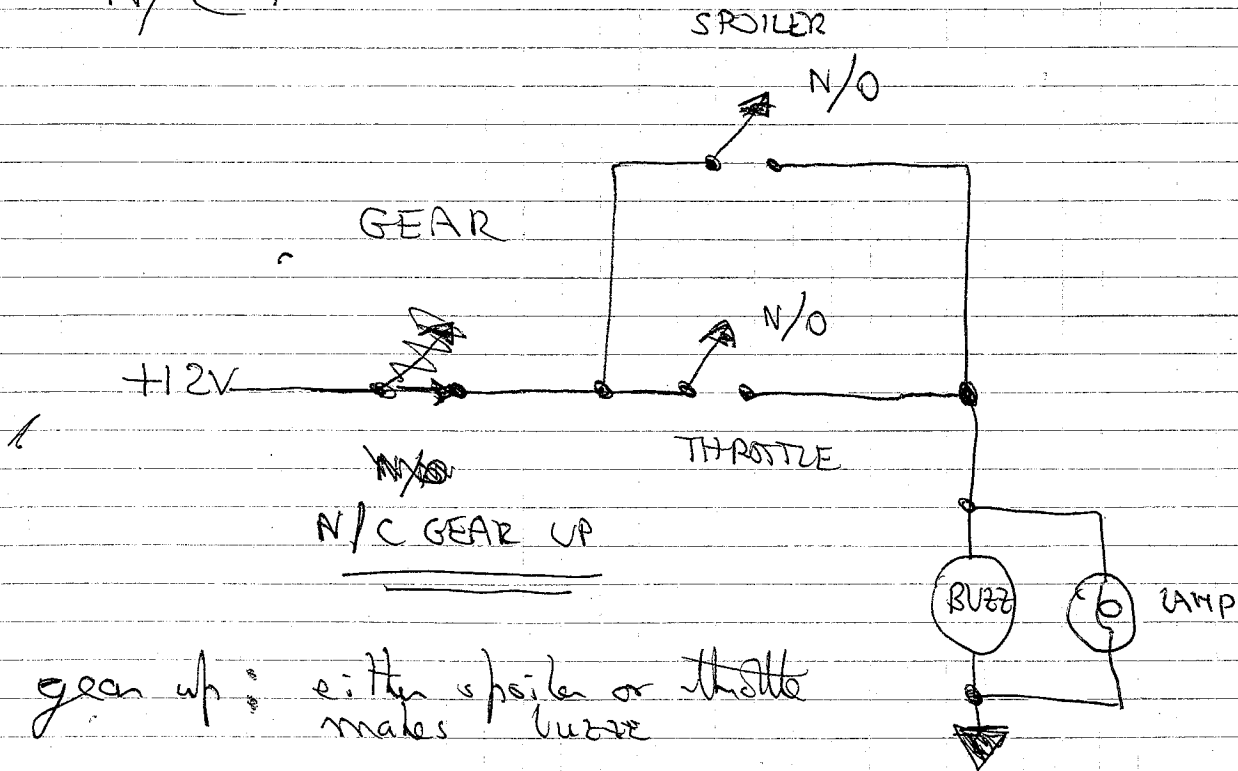 SPOILER
N/O
GEAR
N/O
+12V
THROTTLE
N/C GEAR UP
BUZZ
LAMP
gear up: either spoiler or throttle
makes buzze